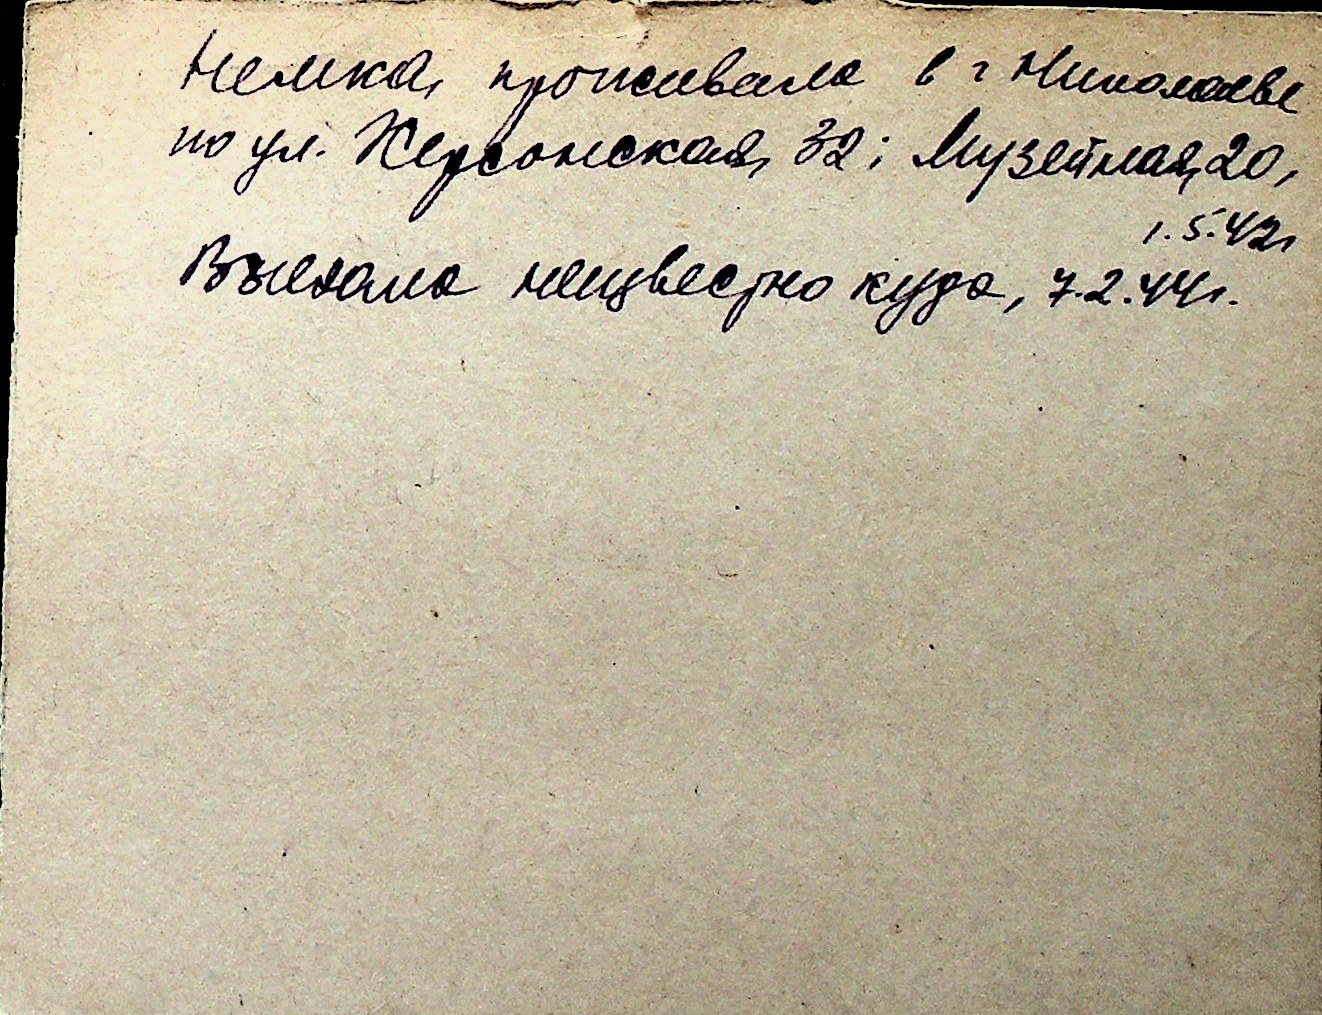 Немка, проживала в г Николаеве
по ул. Херсонская, 32; Музейная, 20,
1.5.42г
Выехала неизвестно куда, 7.2.44г.